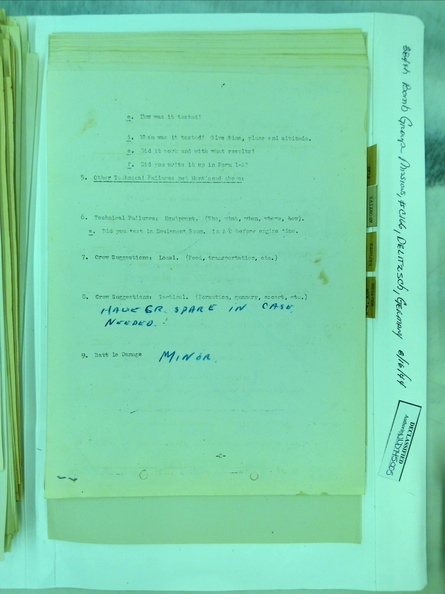 c. How was it tested?
d. When was it tested? Give time, place and altitude.
e. Did it work and with what results?
f. Did you write it up in Form 1-A?
5. Other Technical Failures not mentioned above:
6. Technical Failures: Equipment. (Who, what, when, where, how).
a. Did you test in Equipment Room, in A/C before engine time.
7. Crew Suggestions: Local. (Food, transportation, etc.)
8. Crew Suggestions: Tactical. (Formation, gunnery, escort, etc.)
HAVE GR. SPARE IN CASE
NEEDED.
9. Battle Damage MINOR.
384th Bomb Group Missions, DELITZSCH, GERMANY 8/16/44
DECLASSIFIED
Authority